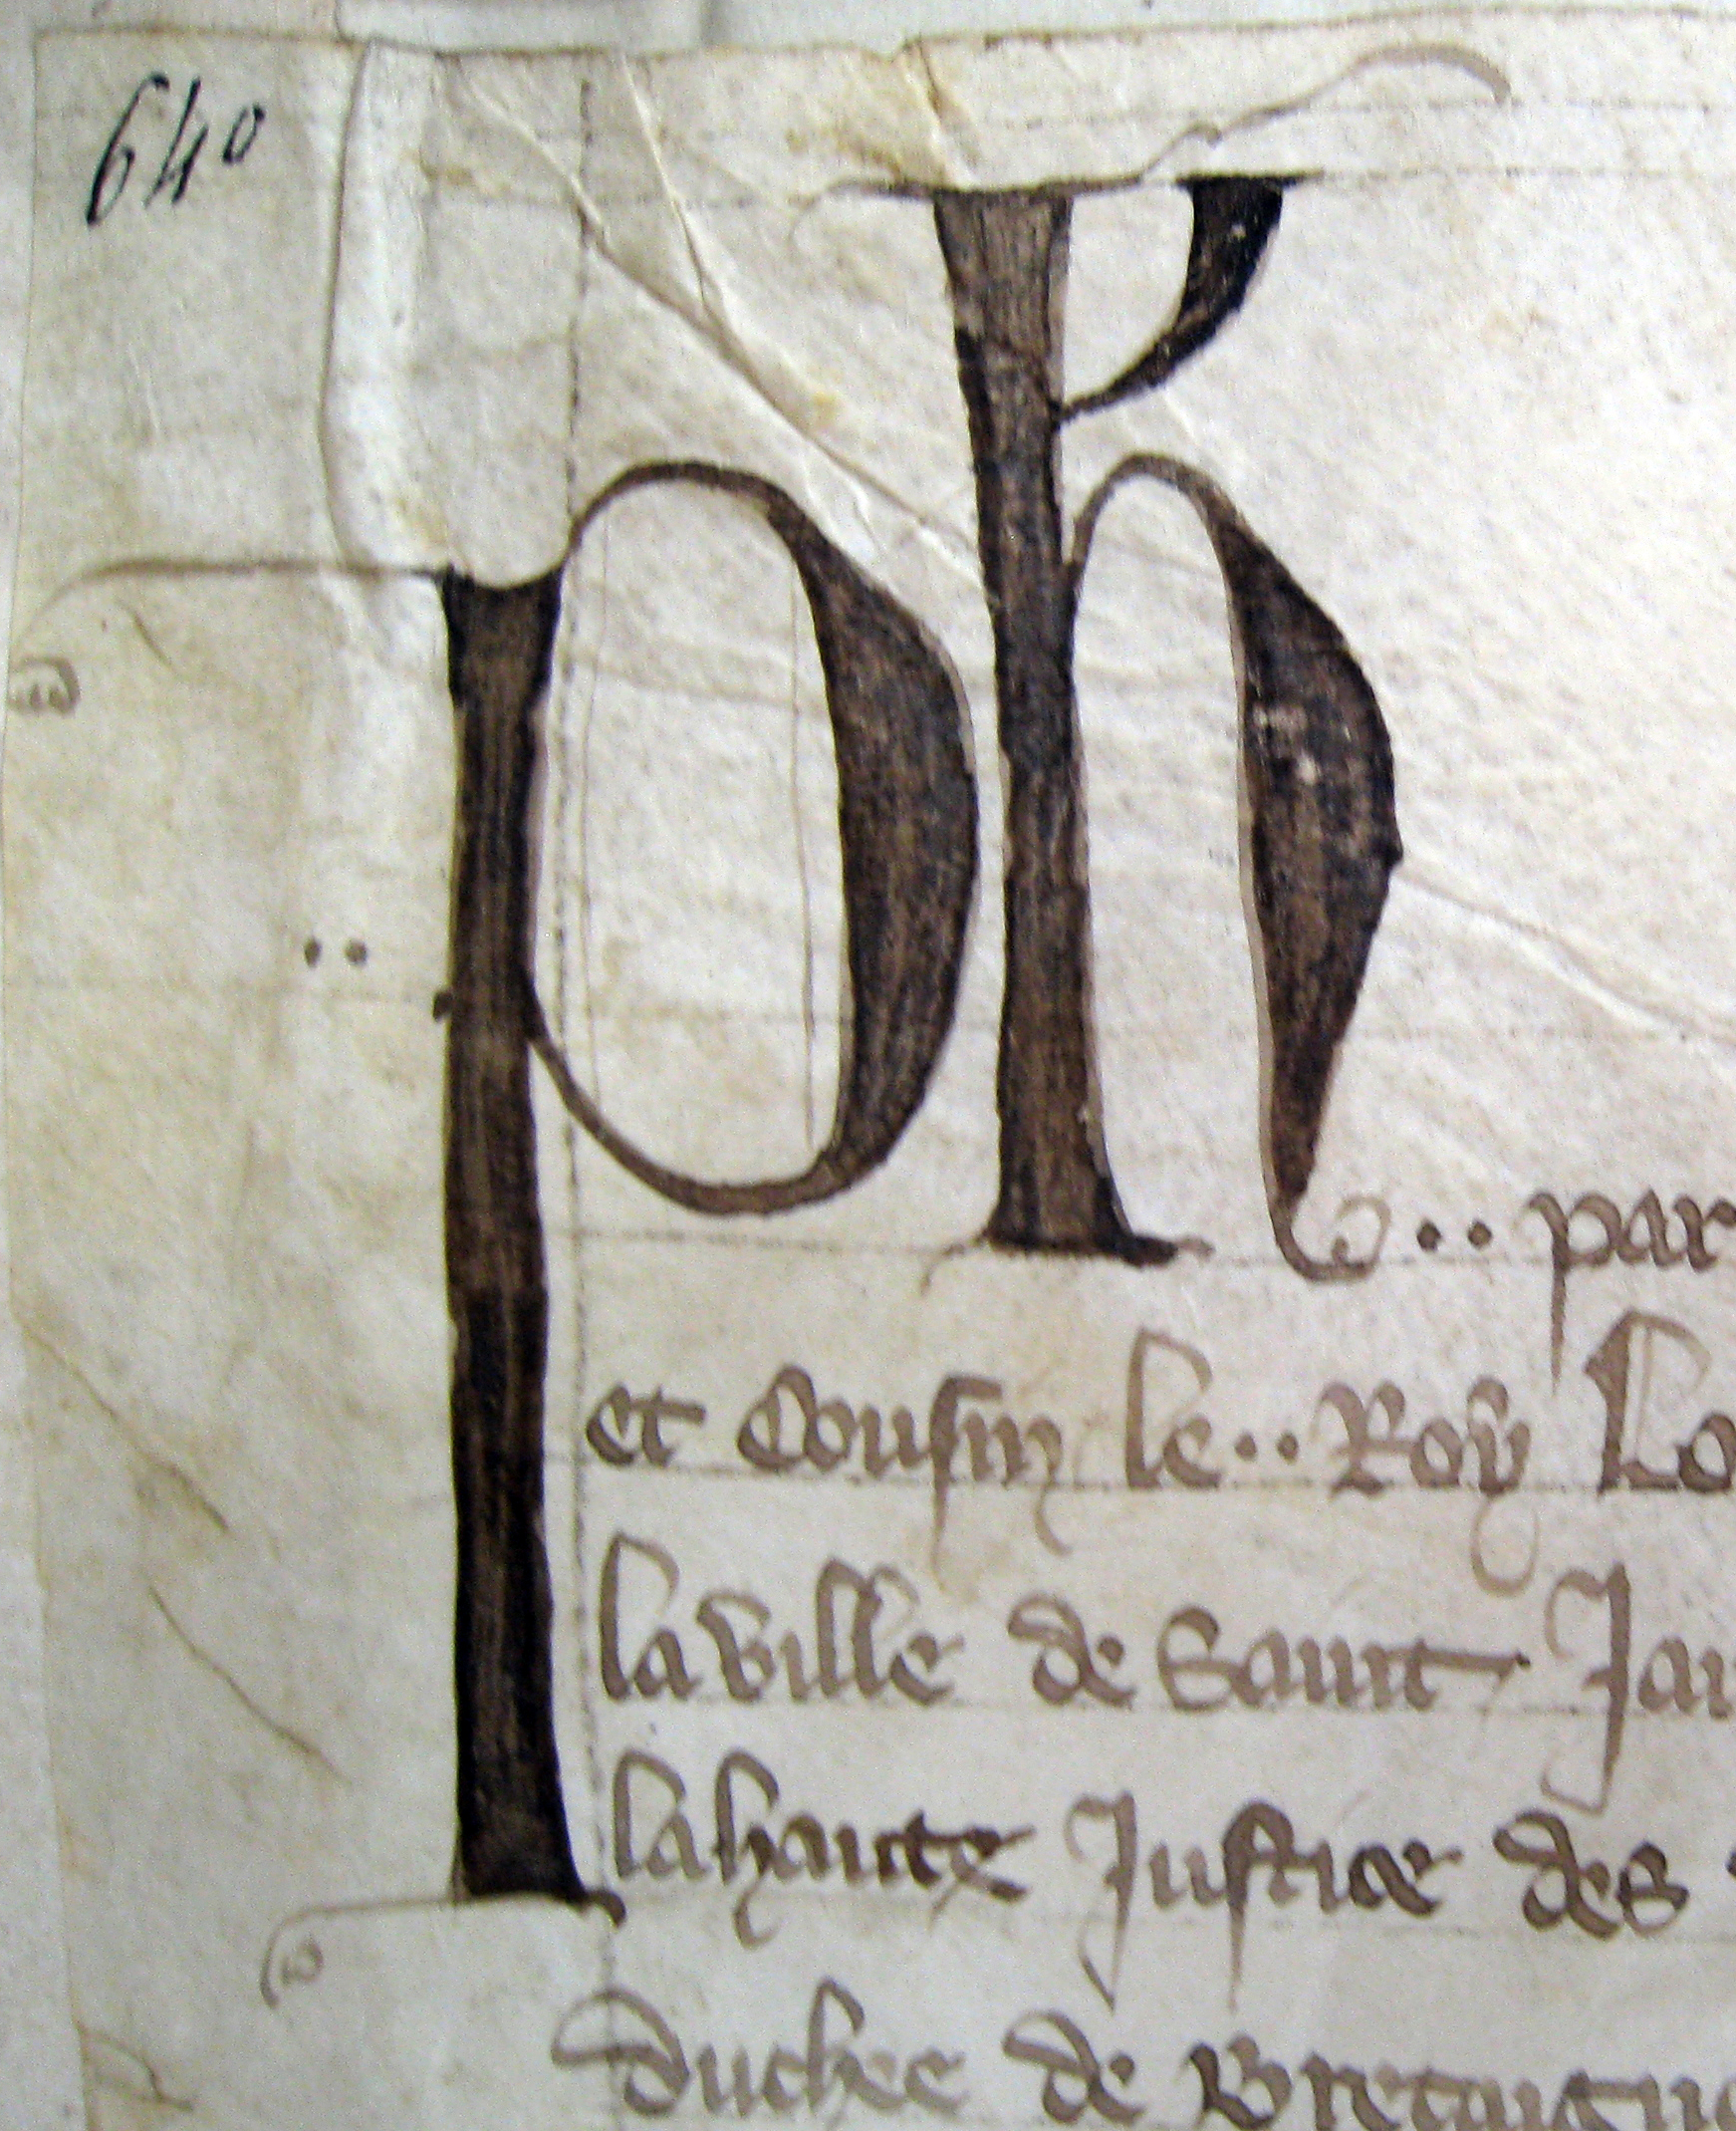 640
Ph .. par
et Cousin le .. Roy Lo
la ville de Saint Ja
la haute Justice des
duchee de Bretaigne